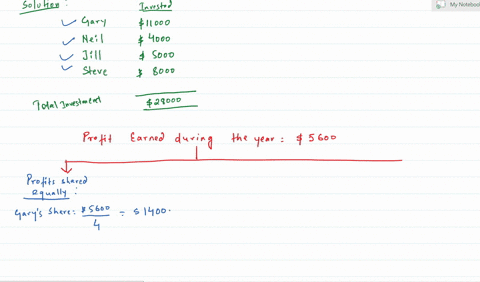 My Notebook
Solution: Invested
Gary $11000
Neil $4000
Jill $ 5000
Steve $ 8000
Total Investment $28000
Profit Earned during the year: $ 5600
Profits shared
equally:
Gary's Share: $ 5600 / 4 = $1400.